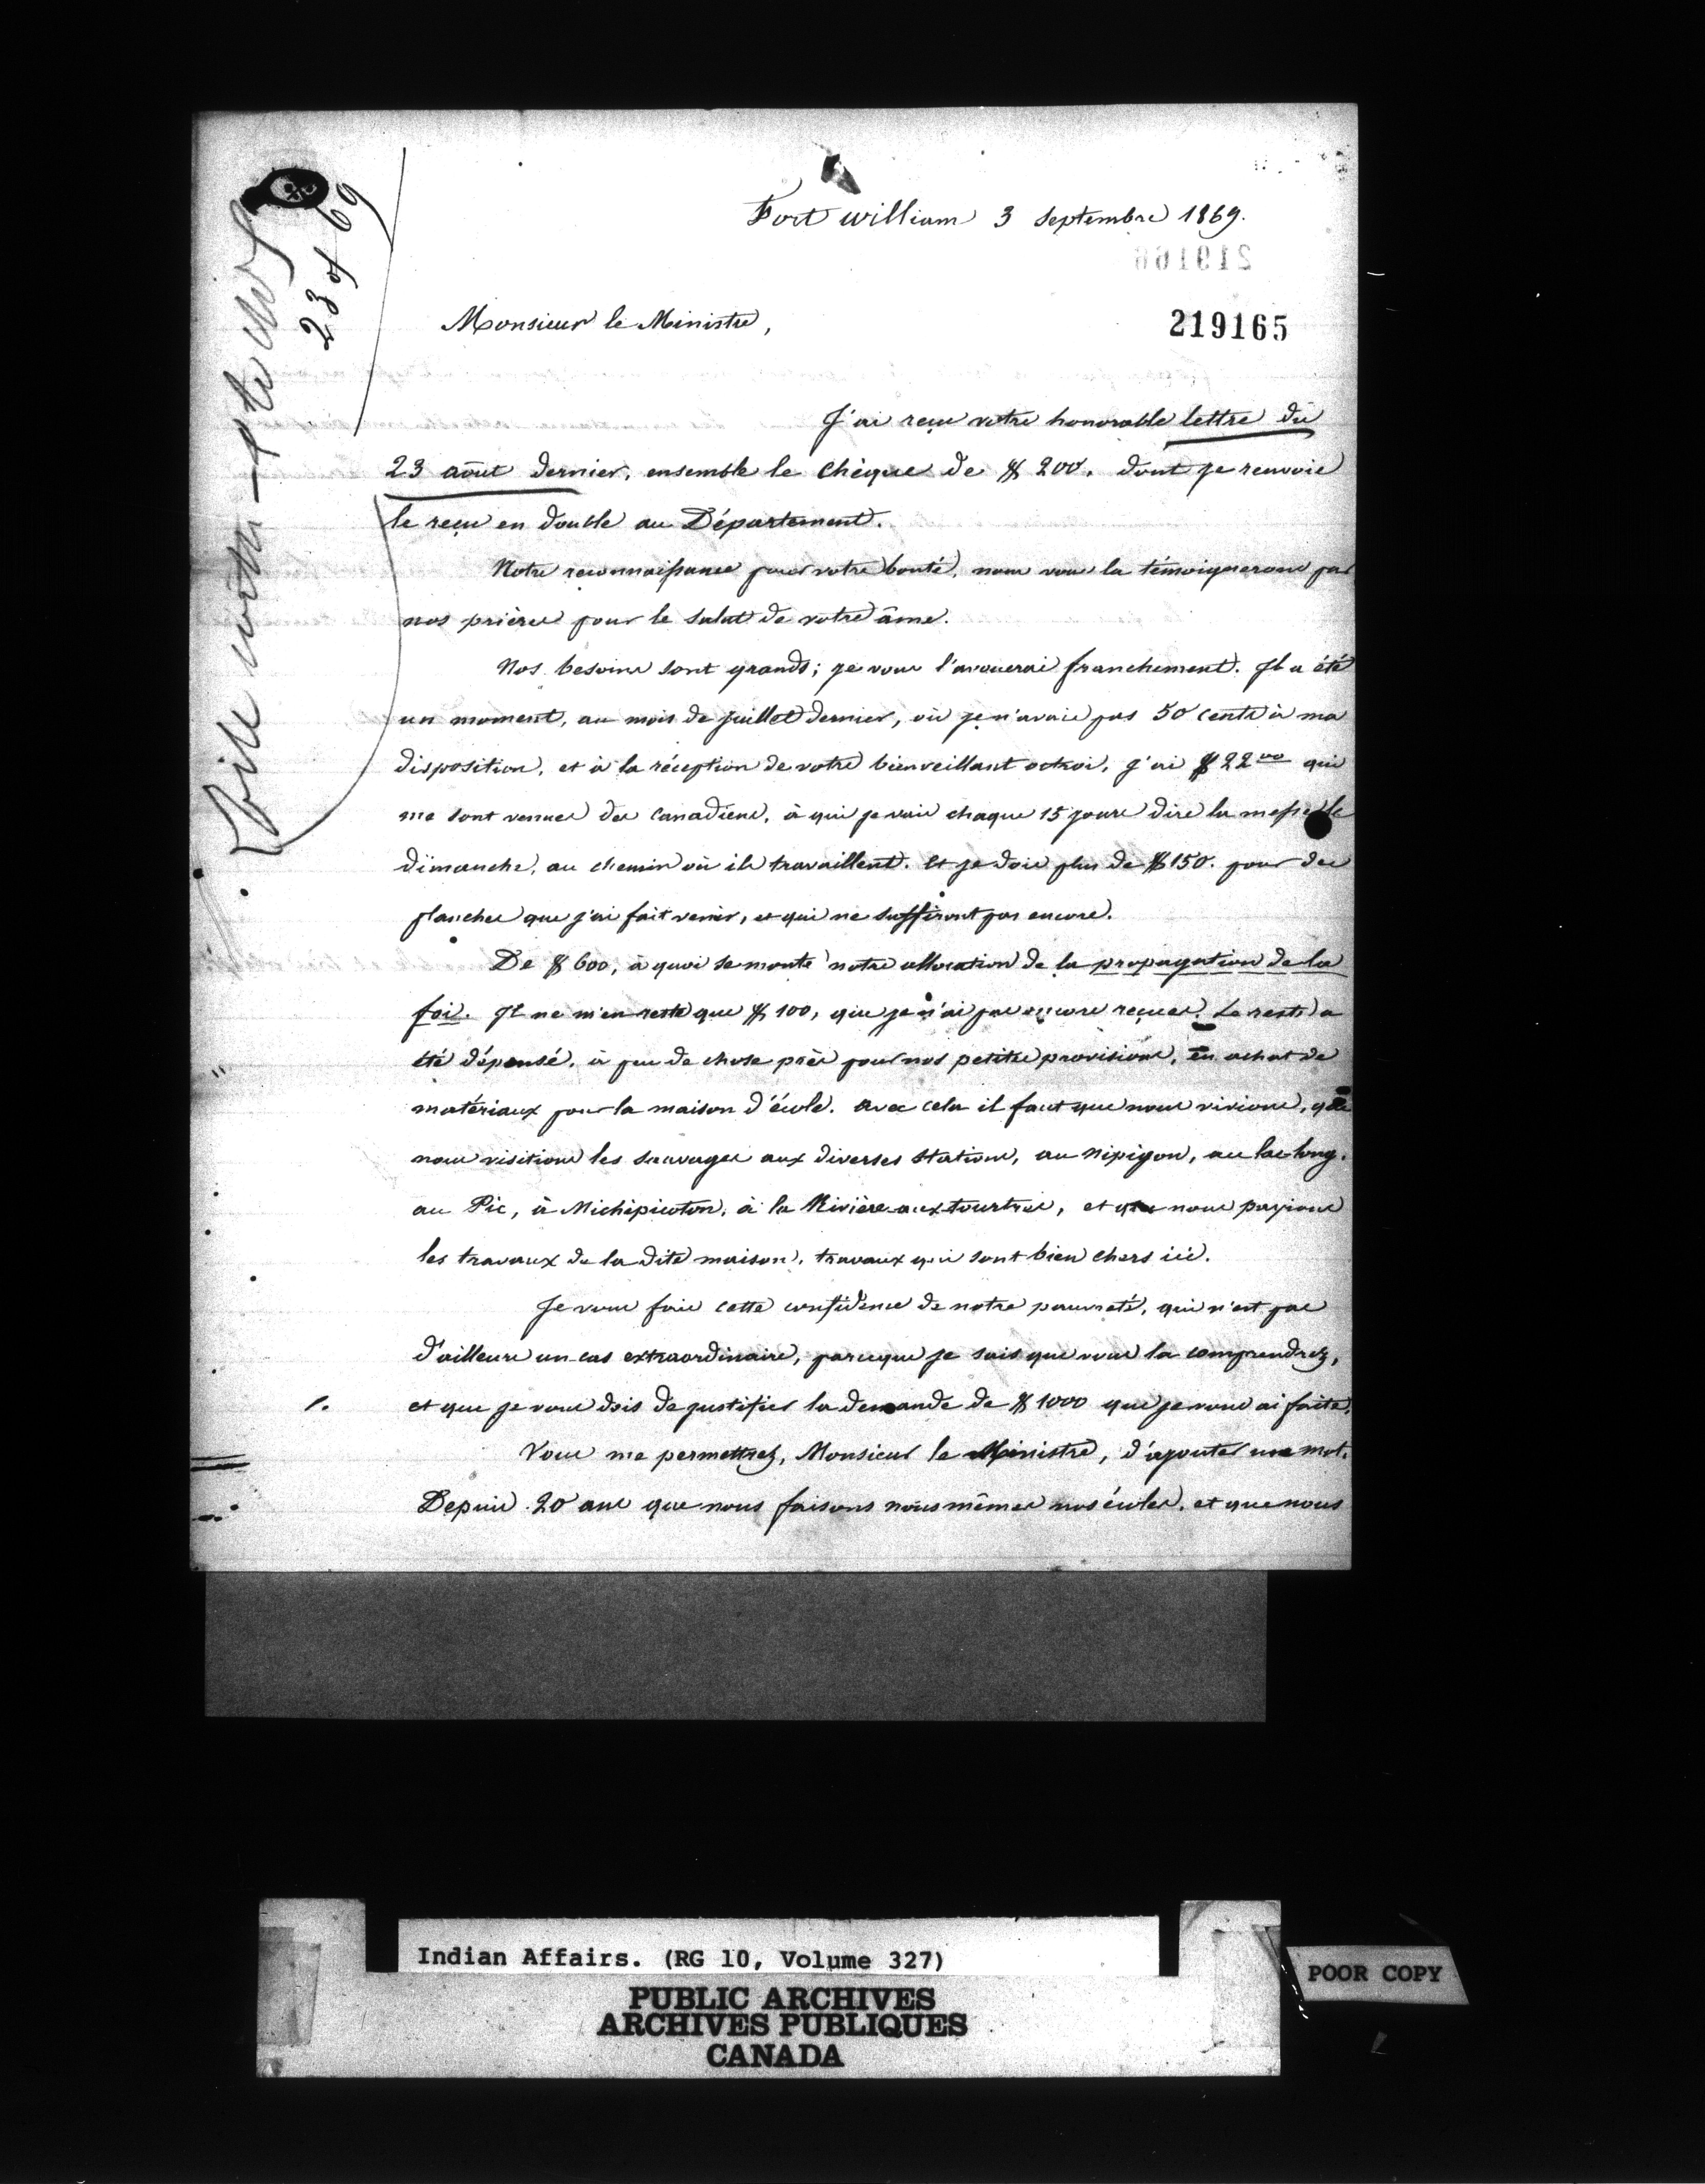 Fort William 3 Septembre 1869.
219166
Monsieur le Ministre,
219165
J'ai reçu votre honorable lettre du
23 août dernier, ensemble le chèque de $ 200. dont je renvoie
le reçu en double au Département.
Notre reconnaissance pour votre bonté, nous vous la témoignerons par
nos prières pour le salut de votre âme.
Nos besoins sont grands; je vous l'avouerai franchement. Il a été
un moment, au mois de juillet dernier, où je n'avais pas 50 cents à ma
disposition, et à la réception de votre bienveillant octroi, j'ai $ 22 00 qui
me sont venues des Canadiens, à qui je vais chaque 15 jours dire la messe le
dimanche, au chemin où ils travaillent. Et je dois plus de $ 150. pour des
planches que j'ai fait venir, et qui ne suffiront pas encore.
De $ 600, à quoi se monte notre allocation de la propagation de la
foi. Il ne m'en reste que $ 100, que je n'ai pas encore reçues. Le reste a
été dépensé, à peu de chose près pour nos petites provisions, en achat de
matériaux pour la maison d'école. Avec cela il faut que nous vivions, que
nous visitions les sauvages aux diverses stations, au Nipigon, au lac long,
au Pic, à Michipicoton, à la Rivière aux tourtres, et que nous payions
les travaux de la dite maison, travaux qui sont bien chers ici.
Je vous fais cette confidence de notre pauvreté, qui n'est pas
d'ailleurs un cas extraordinaire, parceque je sais que vous la comprendrez,
et que je vous dois de justifier la demande de $ 1000 que je vous ai faite.
Vous me permettrez, Monsieur le Ministre, d'ajouter un mot.
Depuis 20 ans que nous faisons nous mêmes nos écoles, et que nous
File with
23 of 69
Indian Affairs. (RG 10, Volume 327)
PUBLIC ARCHIVES
ARCHIVES PUBLIQUES
CANADA
POOR COPY